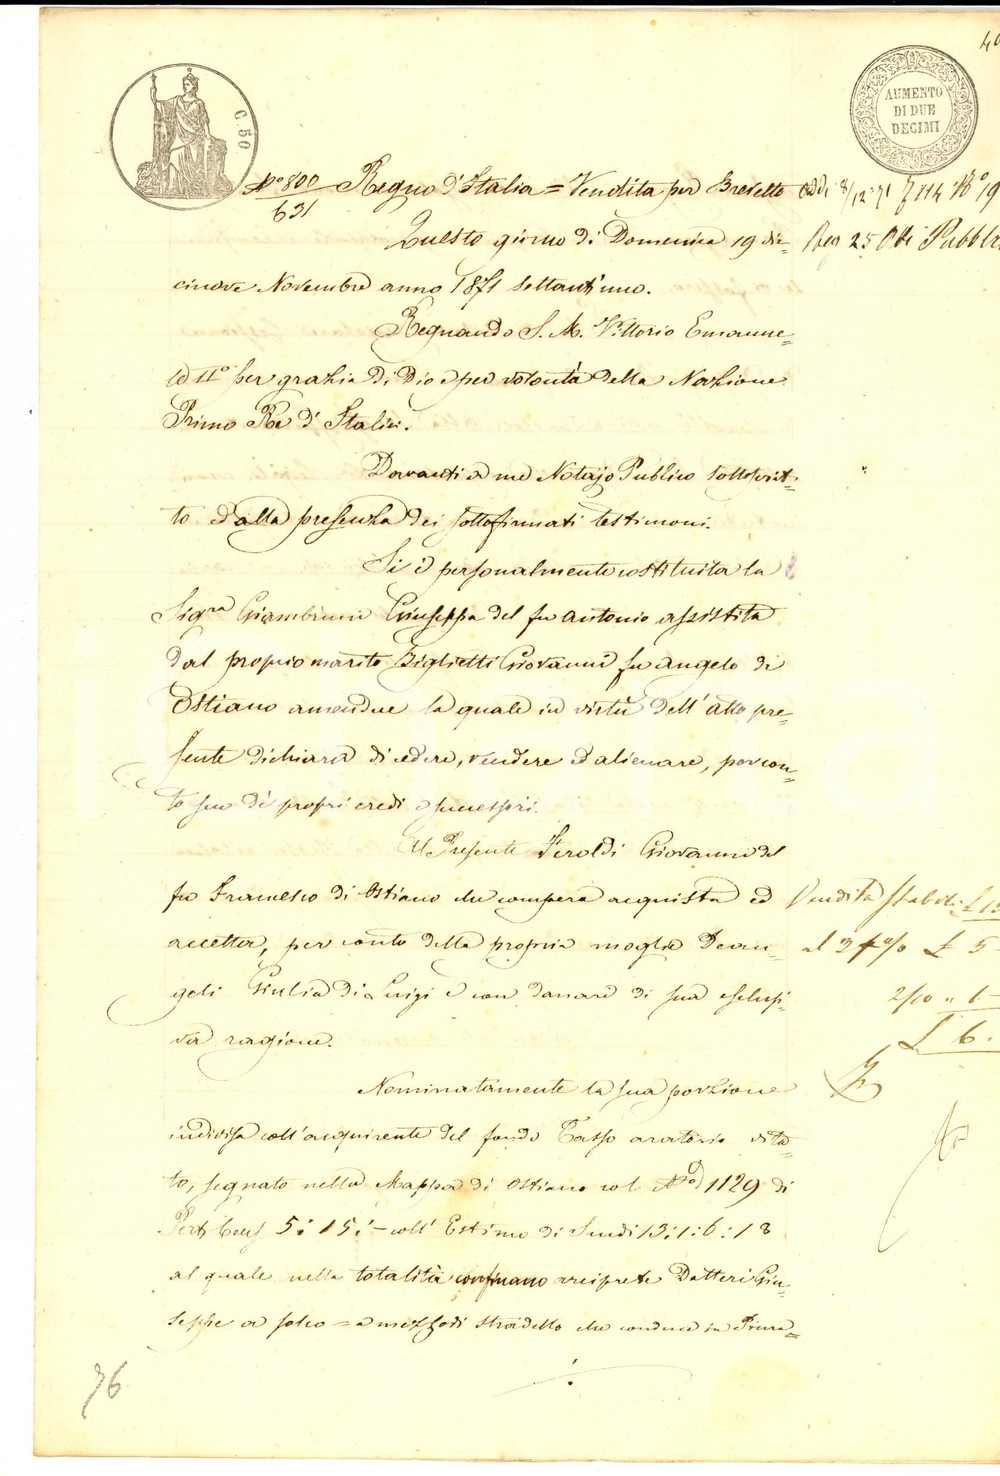 C. 50
AUMENTO
DI DUE
DECIMI
N.o 800 Regno d'Italia = Vendita per Brevetto
631
Addi 8/12 71 f 114 N.o 19
Questo giorno di Domenica 19 die=
Reg 25 Atti Pubbl
cinove Novembre anno 1871 settant'uno.
Regnando S. M. Vittorio Emanue=
le II.o per grazia di Dio e per volontà della Nazione
Primo Re d'Italia.
Davanti a me Notajo Publico sottoscrit=
to e dalla presenza dei sottofirmati testimoni.
Si è personalmente costituita la
Sig.ra Giambruni Giuseppa del fu Antonio assistita
dal proprio marito Biglietti Giovanni fu Angelo di
Ostiano amendue la quale in virtù dell'Atto pre=
sente dichiara di cedere, vendere ed alienare, per con=
to suo di propri eredi e successori.
Al Presente Feroldi Giovanni del
fu Francesco di Ostiano che compera acquista ed
accetta, per conto della propria moglie Dean=
geli Giulia di Luigi e con danaro di sua esclusi=
va ragione.
Vendita Stabili £ 13
al 3 4 % £ 5
2/10 " 1 —
£ 6.
Nominatamente la sua porzione
indivisa coll'acquirente del fondo Tasso aratorio vita=
to, segnato nella Mappa di Ostiano col N.o 1129 di
Pert. Cens 5:15:— coll'Estimo di Scudi 13:1:6:18
al quale nella totalità confinano arciprete Datteri Giu=
seppe a solco = a mezzodi stradello che conduce in
76